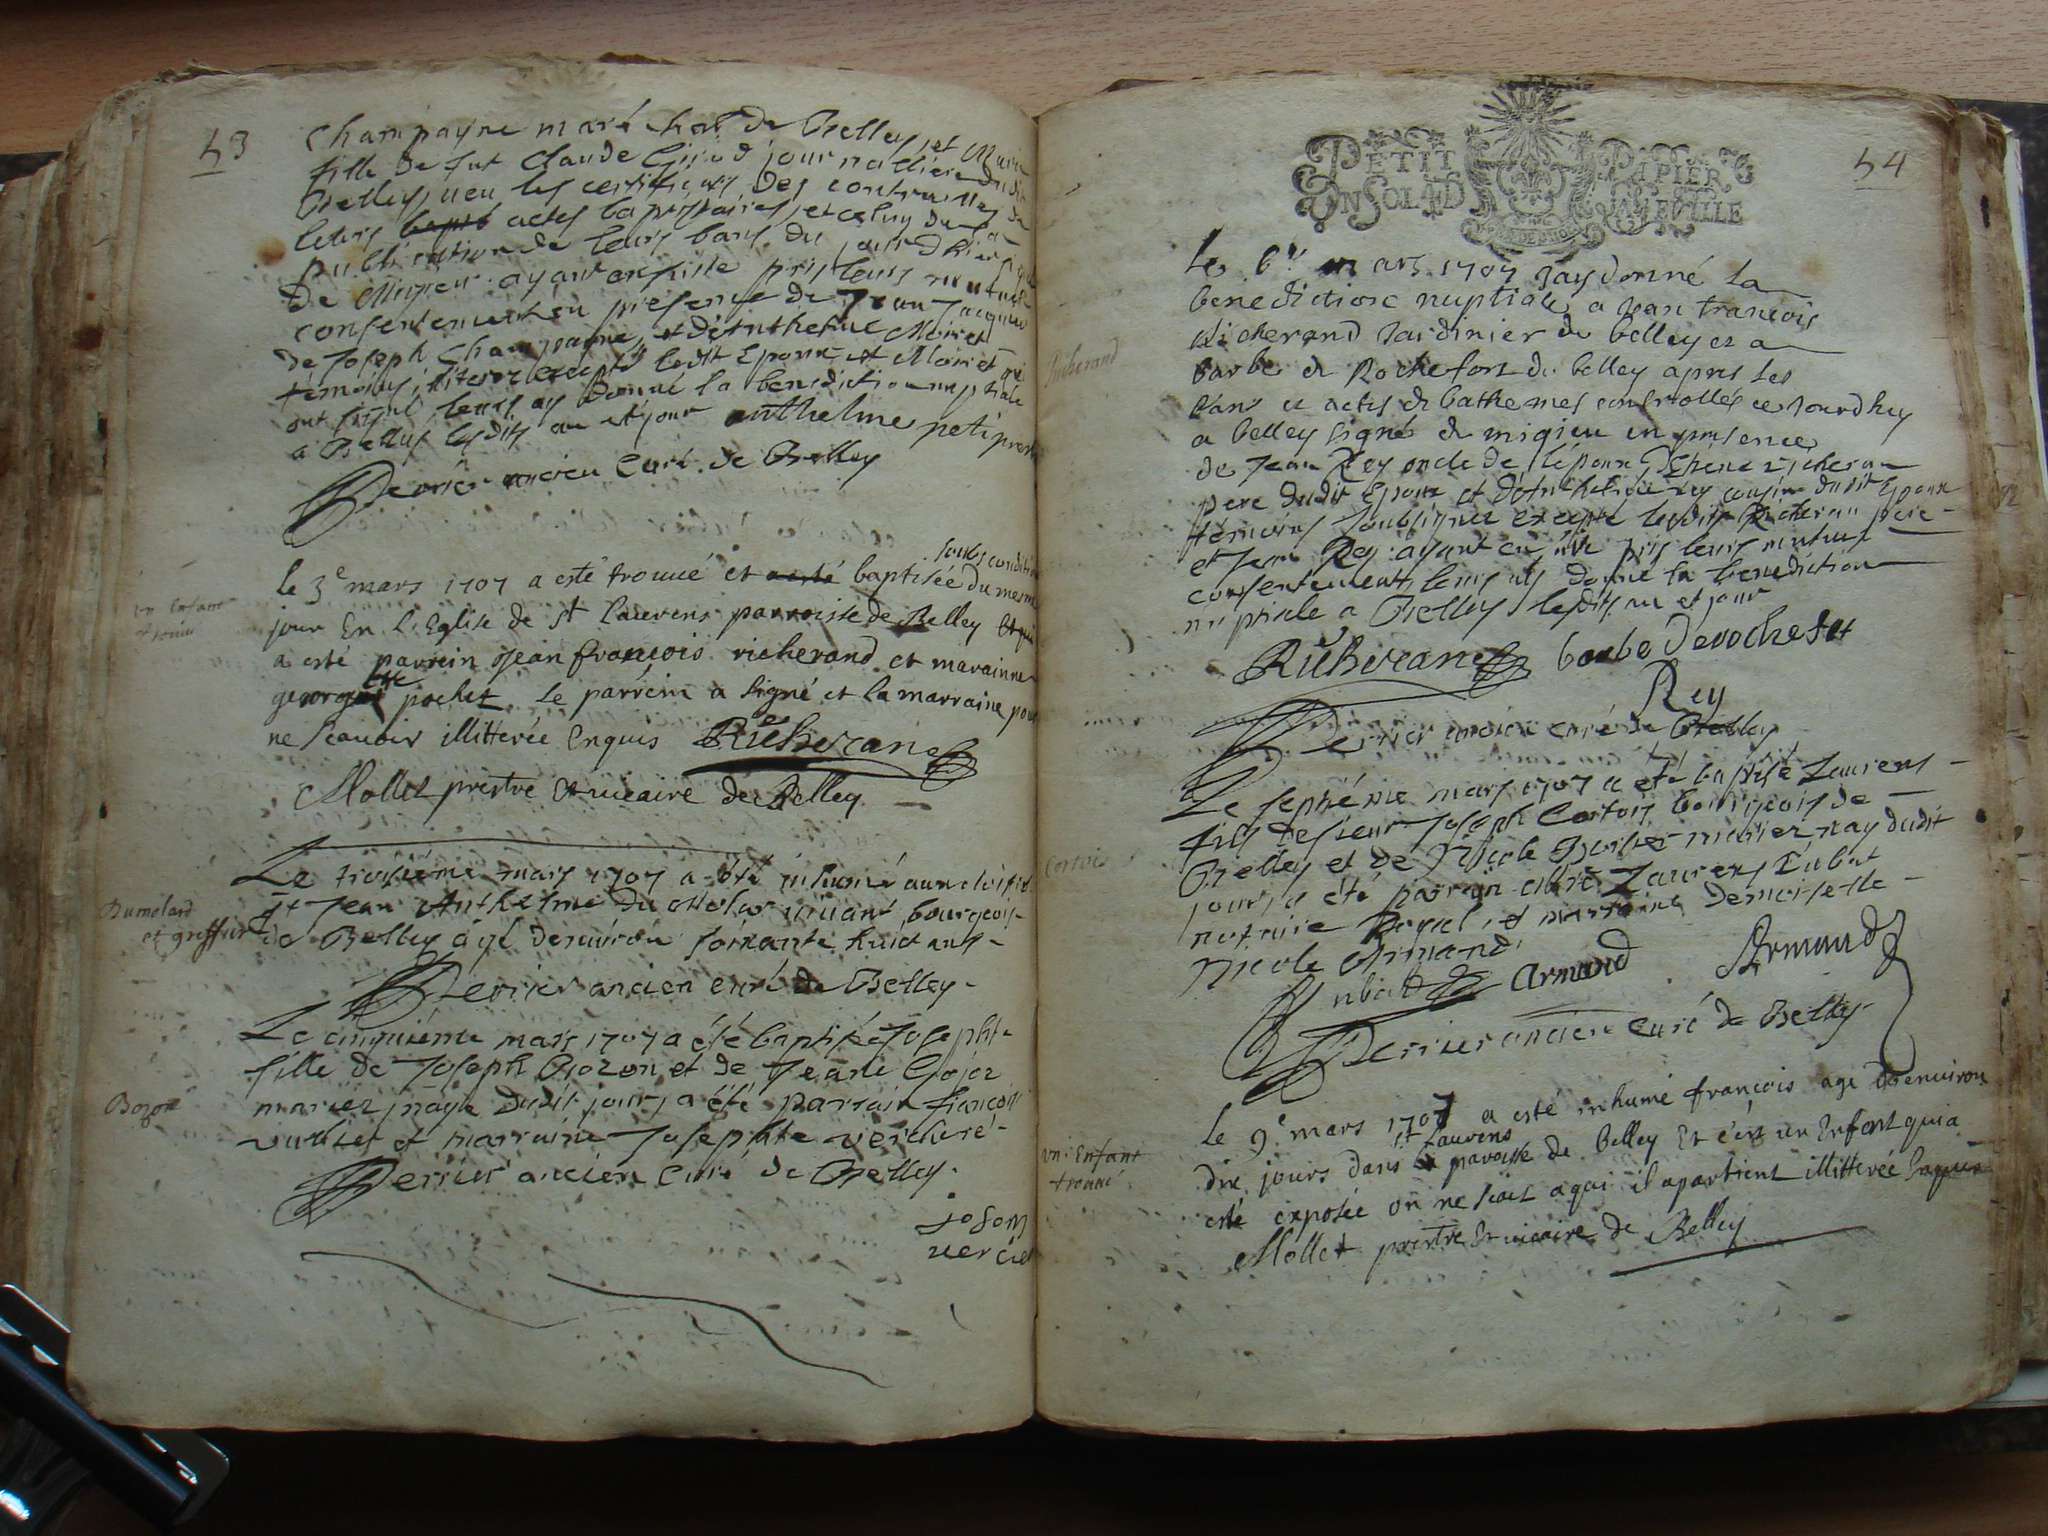 53
Champagne maréchal de Belley, et Marie
fille de fut Claude Girod journallier dudit
Belley, veu les certificats des contrerolles de
leurs actes baptistaires, et celuy de la
publication de leurs bans du jourdhier signé
De Migieu ayant ensuitte pris leurs mutuels
consentement en presence de Jean Jacques
de Joseph Champagne, et d'Anthelme Moiret
témoins, illiterez excepté ledit Epoux et Moiret qui
ont signé, leurs ay donné la benediction nuptiale
a Belley lesdits an et jour anthelme peti
Perrier ancien Curé de Belley
un Enfant
trouué
soubs condition
le 3e mars 1707 a esté trouué et a esté baptisée du mesme
jour En L'Eglise de st Laurens parroisse de Belley Et qui
a esté parrein Jean françois richerand et maraine
georgette pochet le parrein a signé et la marraine pour
ne scauoir illitterée Enquis Richerand
Mollet prestre et vicaire de Belley
Dumolard
et greffier
Le troisiéme mars 1707 a été inhumé au cloistre
st Jean Anthelme du Molar viuant bourgeois
de Belley agé denuiron soixante huict ans
Perrier ancien curé de Belley
Bozon
Le cinquiéme mars 1707 a été baptisée Josephte
fille de Joseph Bozon et de Jeane Gojoz
mariez, nayé dudit jour, a été parrain françois
vuillet et marraine Josephte vercheré
Perrier ancien Curé de Belley
54
PETIT PAPIER
UN SOL LA D FEVILLE
Richerand
Le 6e mars 1707 Jay donné la
benediction nuptiale a Jean francois
Richerand Jardinier de belley et a
barbe de Rochefort de belley apres les
bans et actes de bathemes controllés ce Jourdhuy
a belley signé de migieu en presence
de Jean Rey oncle de l'époux, richeran
pere dudit Epoux et d'Anthelme rey cousin dudit Epoux
témoins soubsignez excepté lesdits Richeran pere
et Jean Rey ayant ensuite pris leurs mutuels
consentements leurs ay donné la benediction
nuptiale a Belley lesdits an et jour
Richerand barbe derochefort
Rey
Perrier ancien curé de Belley
Cortois
Le septiéme mars 1707 a été baptisé Laurens
fils de sieur Joseph Cortois bourgeois de
Belley et de Nicole mariez nay dudit
jour, a été parrain Laurens Linbat
notaire Royal, et marraine Demoiselle
Nicole Armand
Armand Armand
Perrier ancien curé de Belley
un Enfant
trouué
le 9e mars 1707 a esté inhumé françois agé denuiron
st Laurens
dix jours dans la paroisse de belley Et c'est un Enfant qui a
esté exposée on ne scait a qui il apartient illitterée Enquis
Mollet prestre Et vicaire de Belley